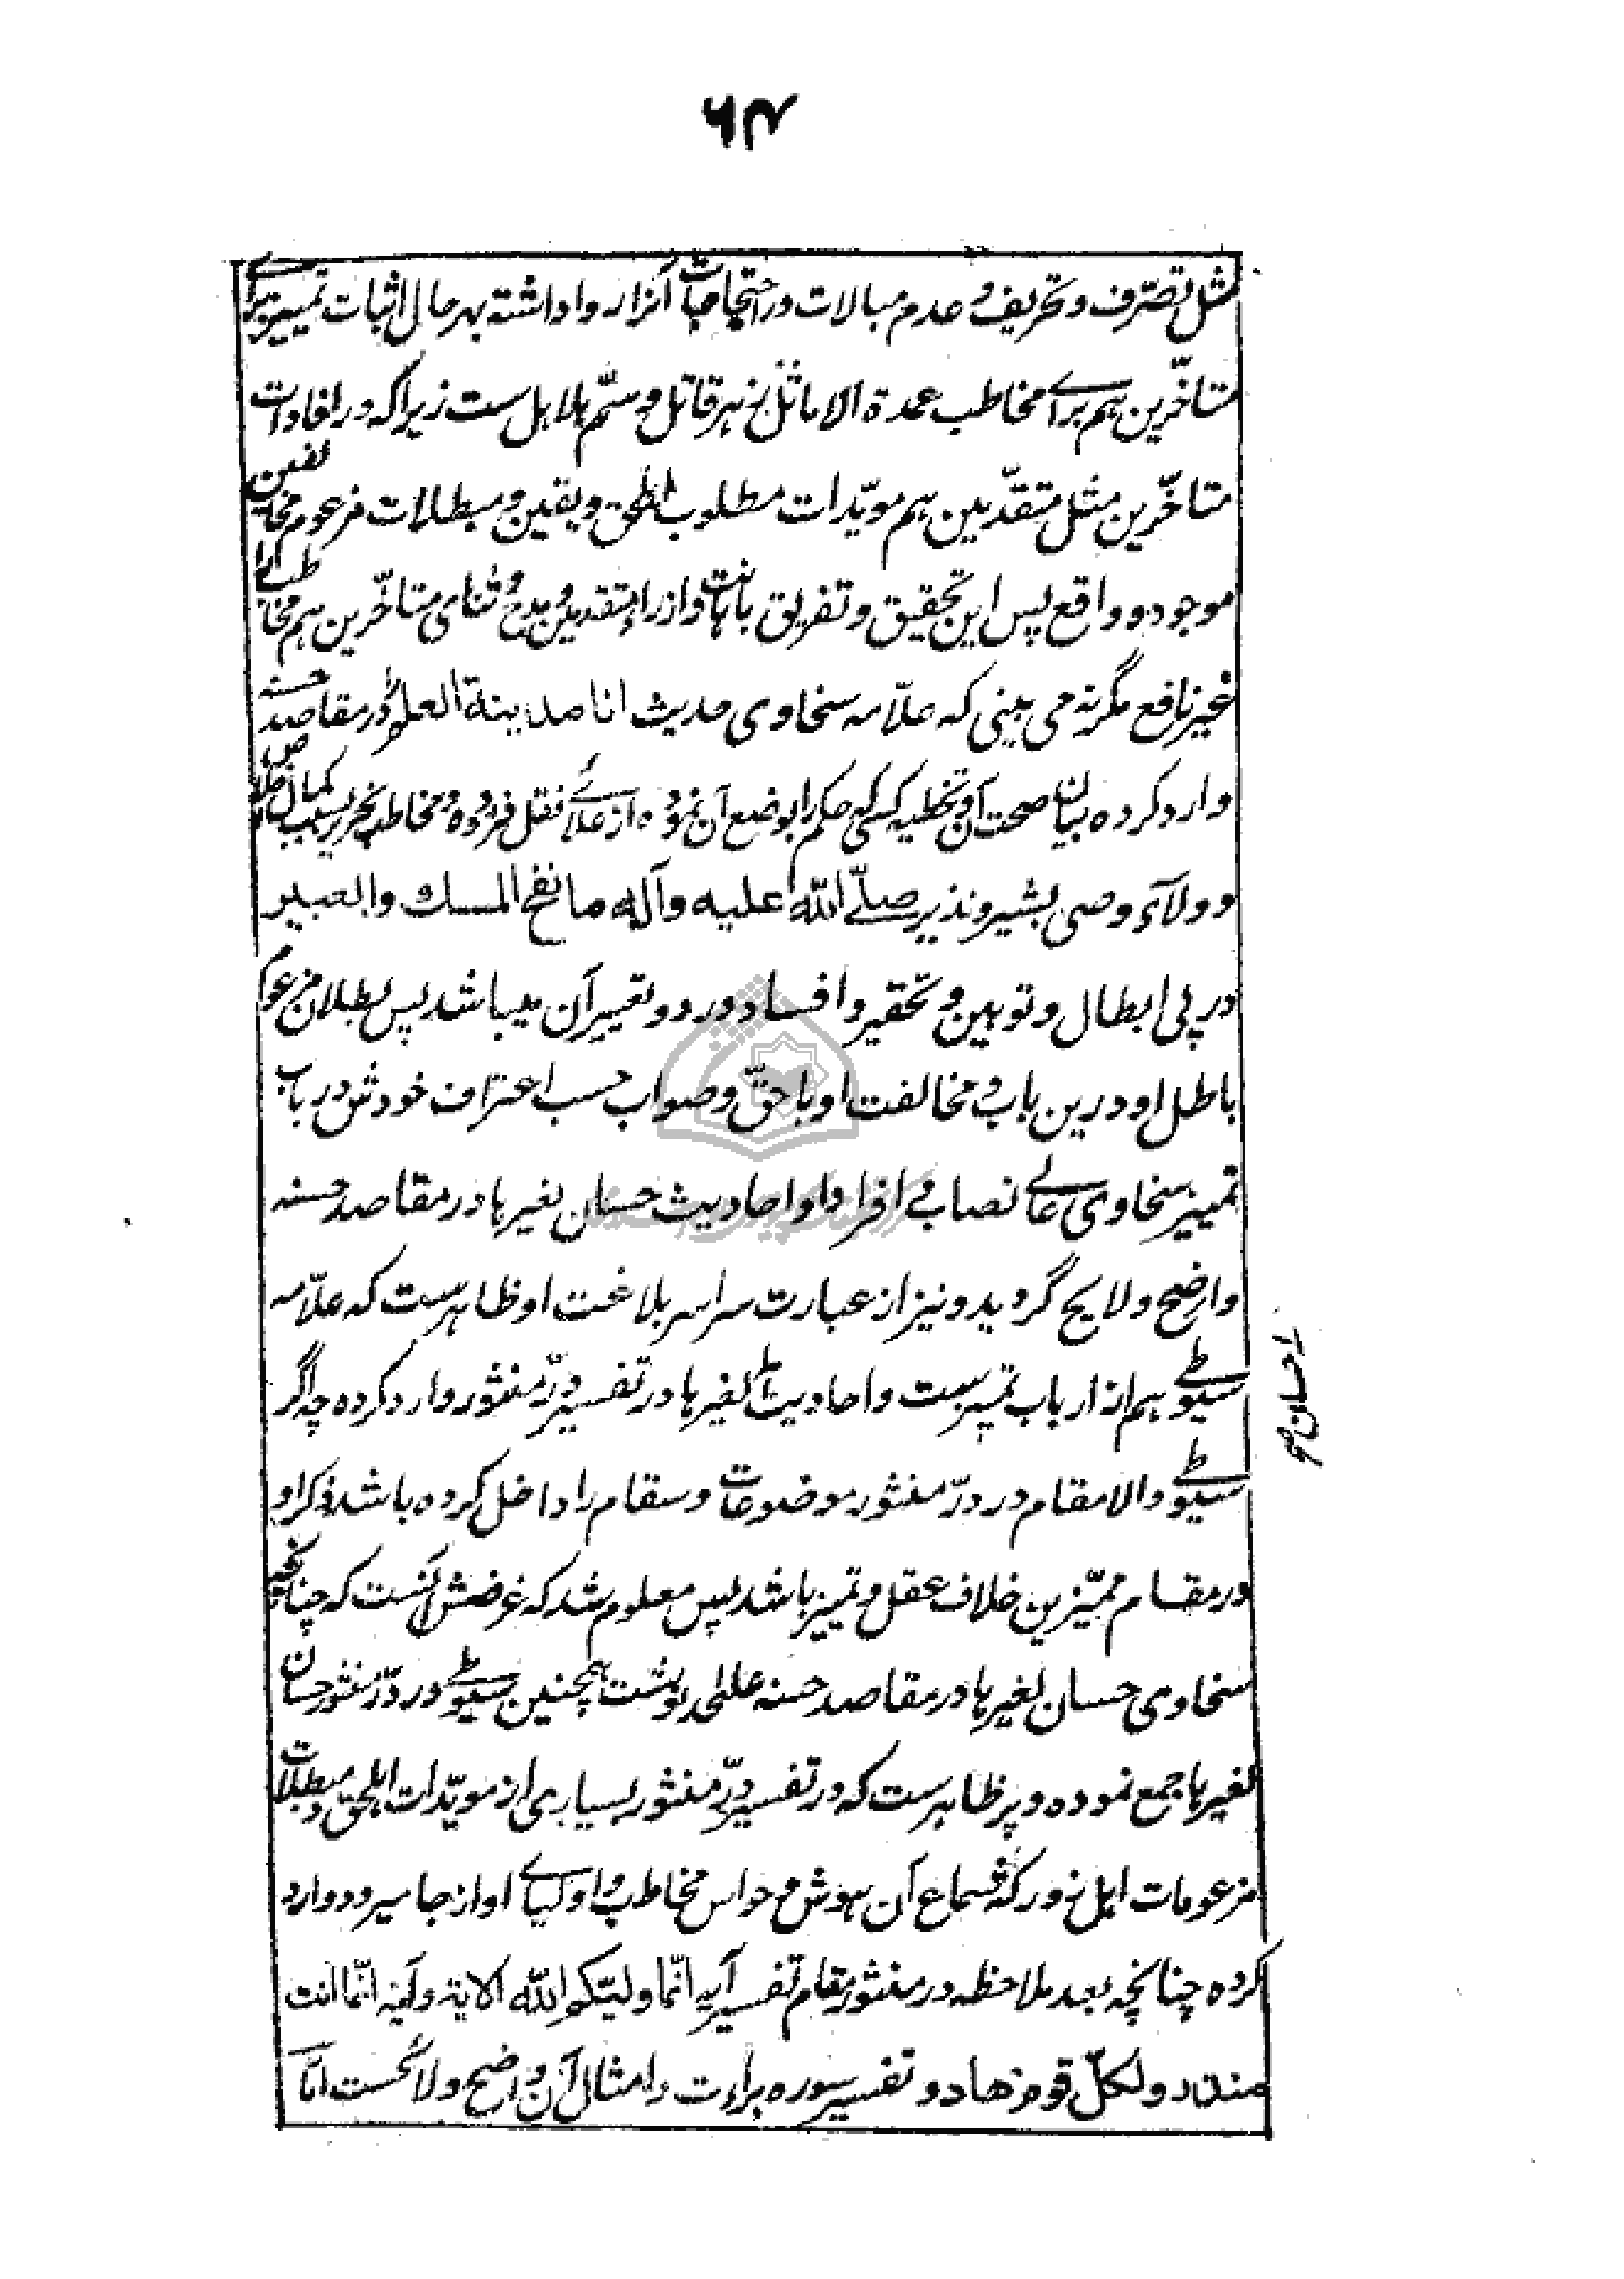 مثل تصرّف و تحریف و عدم مبالات در احتجاجات آنرا روا داشته بهر حال اثبات تمییز برای
متاخّرین هم برای مخاطب عمدة الاماثل زهر قاتل و سمّ هلاهل ست زیرا که در افادات
متاخّرین مثل متقدّمین هم مویّدات مطلوب اهل حق و یقین و مبطلات مزعوم مخالفین
موجود و واقع پس این تحقیق و تفریق باهانت و ازراء متقدمین و مدح و ثنای متاخّرین هم مخاطب را
غیر نافع مگر نه می بینی که علّامه سخاوی حدیث انا مدینة العلم را در مقاصد حسنه
وارد کرده بیان صحت آن و تخطیه کسی که حکم را بوضع آن نموده از علائی نقل فرموده و مخاطب نحریر بسبب کمال اخلاص
و ولآء وصی بشیر و نذیر صلّی الله علیه وآله ما نفخ المسك والعبیر
در پی ابطال و توهین و تحقیر و افساد و رد و تعییر آن میباشد پس بطلان مزعوم
باطل او درین باب و مخالفت او با حقّ و صواب حسب اعتراف خودش در باب
تمییز سخاوی عالی نصاب فی افراد او احادیث حسان لغیرها در مقاصد حسنه
واضح و لایح گردید و نیز از عبارت سراسر بلاغت او ظاهرست که علّامه
سیوطی هم از ارباب تمییز ست و احادیث لغیرها در تفسیر درّ منثور وارد کرده چه اگر
احسان صح
سیوطی والا مقام در درّ منثور موضوعات و سقام را داخل کرده باشد ذکر او
در مقام ممیّزین خلاف عقل و تمییز باشد پس معلوم شد که غرضش آنست که چنانچه
سخاوی حسان لغیرها در مقاصد حسنه علیحده نوشت همچنین سیوطی در درّ منثور حسان
لغیرها جمع نموده و پر ظاهرست که در تفسیر درّ منثور بسیاری از مویّدات اهل حق و مبطلات
مزعومات اهل زور که بسماع آن هوش و حواس مخاطب و اولیای او از جا میرود وارد
کرده چنانچه بعد ملاحظه در منثور بمقام تفسیر آیه انّما ولیّکم الله الایة و آیه انّما انت
منذر و لکلّ قوم هاد و تفسیر سوره براءت و امثال آن واضح و لائحست امّا